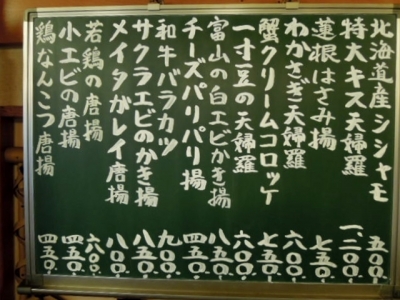 北海道産シシャモ 五〇〇.
特大キス天婦羅 一、二〇〇.
蓮根はさみ揚 七五〇.
わかさぎ天婦羅 六〇〇.
蟹クリームコロッケ 七五〇.
一寸豆の天婦羅 六〇〇.
富山の白エビかき揚 八五〇.
チーズパリパリ揚 四五〇.
和牛バラカツ 九〇〇.
サクラエビのかき揚 八五〇.
メイタがレイ唐揚 八〇〇.
若鶏の唐揚 六〇〇.
小エビの唐揚 四五〇.
鶏なんこつ唐揚 四五〇.